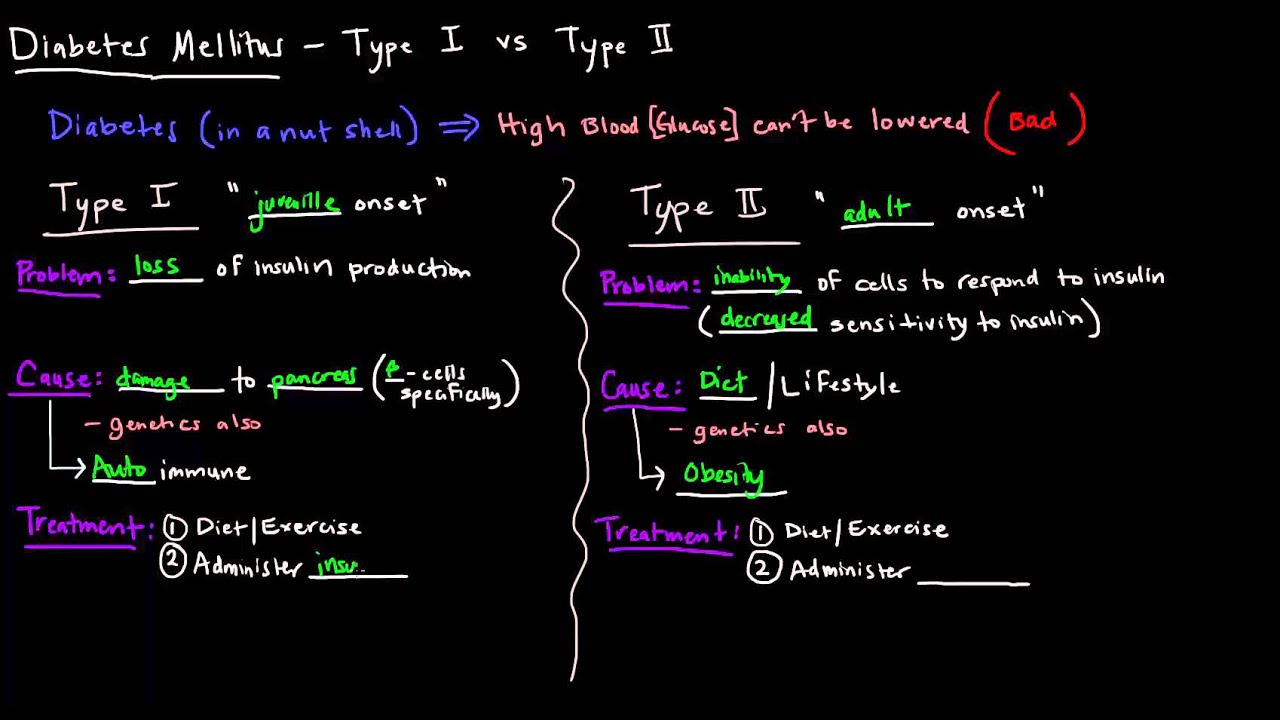 Diabetes Mellitus – Type I vs Type II
Diabetes (in a nut shell) ⇒ High Blood [Glucose] can't be lowered (Bad)
Type I "juvenille onset"
Problem: loss of insulin production
Cause: damage to pancreas (β-cells specifically)
– genetics also
Auto immune
Treatment: ① Diet/Exercise
② Administer insu
Type II "adult onset"
Problem: inability of cells to respond to insulin
(decreased sensitivity to insulin)
Cause: Diet /Lifestyle
– genetics also
Obesity
Treatment: ① Diet/Exercise
② Administer ______